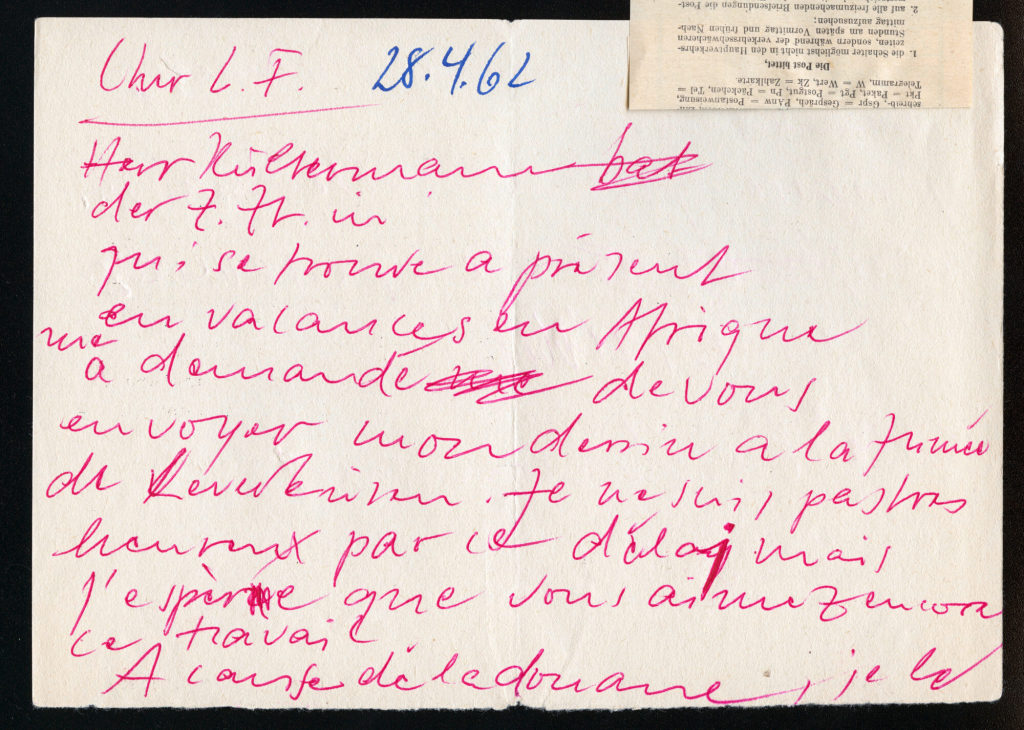 Cher L. F. 28.4.62
Herr Kültermann hat
der z. Zt. in
qui se trouve a présent
en vacances en Afrique
me
a demandé de vous
envoyer mon dessin a la fumée
de Leverkusen. Je ne suis pas tres
heureux par ce délai mais
j'espère que vous aimez encore
ce travail.
A cause de la douane, je le
2. auf alle freizumachenden Briefsendungen die Post-
mittag aufzusuchen;
Stunden am späten Vormittag und frühen Nach-
zeiten, sondern während der verkehrsschwächeren
1. die Schalter möglichst nicht in den Hauptverkehrs-
Die Post bittet,
Telegramm, W = Wert, Zk = Zahlkarte.
Pkt = Paket, Pgt = Postgut, Pn = Päckchen, Tel =
schreib-, Gspr = Gespräch, PAnw = Postanweisung,